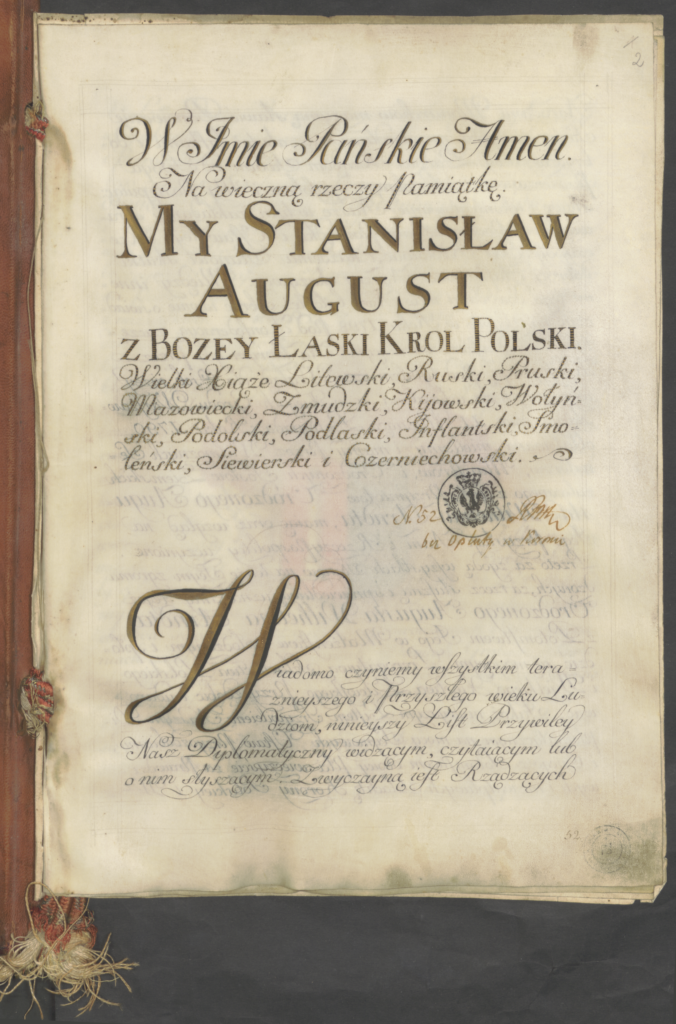 2
W Jmie Pańskie Amen.
Na wieczną rzeczy Pamiątkę.
MY STANISŁAW
AUGUST
Z BOZEY ŁASKI KROL POLSKI.
Wielki Xiąże Litewski, Ruski, Pruski,
Mazowiecki, Zmudzki, Kijowski, Wołyń-
ski, Podolski, Podlaski, Jnflantski, Smo-
leński, Siewierski i Czerniechowski.
N. 52
bez Opłaty
Wiadomo czyniemy wszystkim tera-
znieyszego i Przyszłego wieku Lu-
dziom, ninieyszy List Przywiley
Nasz Dyplomatyczny widzącym, czytaiącym lub
o nim słyszącym. Zwyczayną iest Rządzących
52